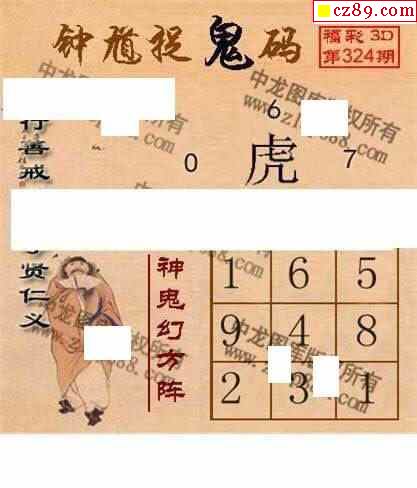 cz89.com
钟馗捉鬼码
福彩3D
第324期
6
0
虎
7
行善戒
贤仁义
神鬼幻方阵
1 6 5
9 4 8
2 3 1
中龙图库版权所有